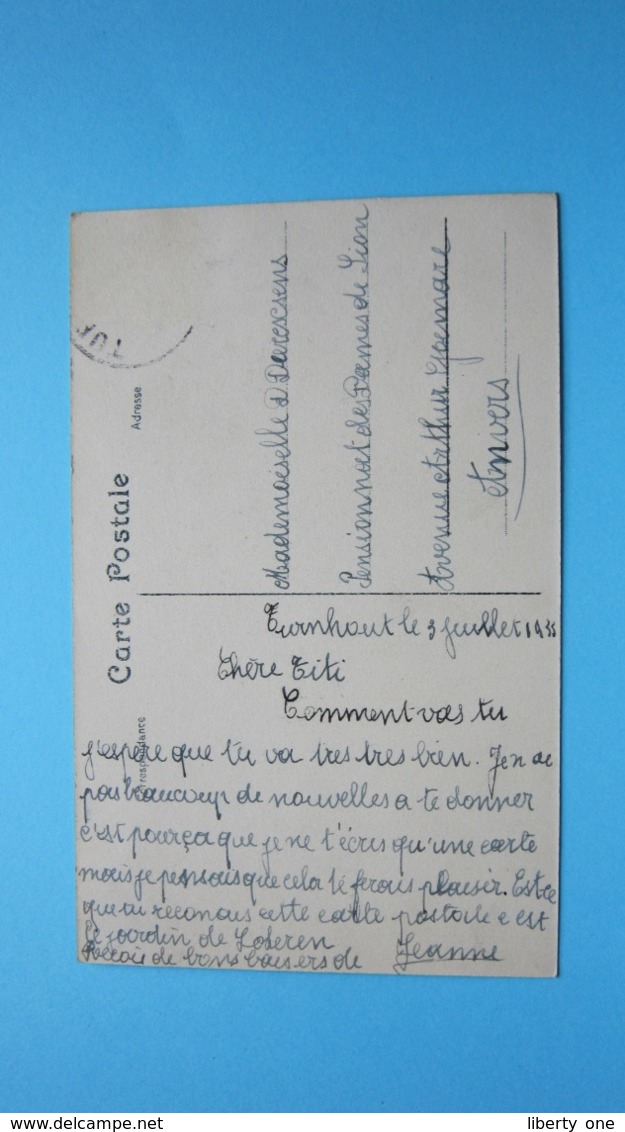 Carte Postale
Adresse
Correspondance
TUR
Mademoiselle D Dierckxsens
Pensionnat des Dames de Sion
Avenue Arthur Goemare
Anvers
Turnhout le 3 juillet 1935
Chère Titi
Comment vas tu
j'espère que tu va tres tres bien. Jen ae
pas beaucoup de nouvelles a te donner
c'est pourça que je ne t'écris qu'une carte
mais je pensais que cela te ferais plaisir. Est ce
que tu reconais cette carte postale c est
le jardin de Loteren
Recois de bons baisers de Jeanne
www.delcampe.net
liberty one